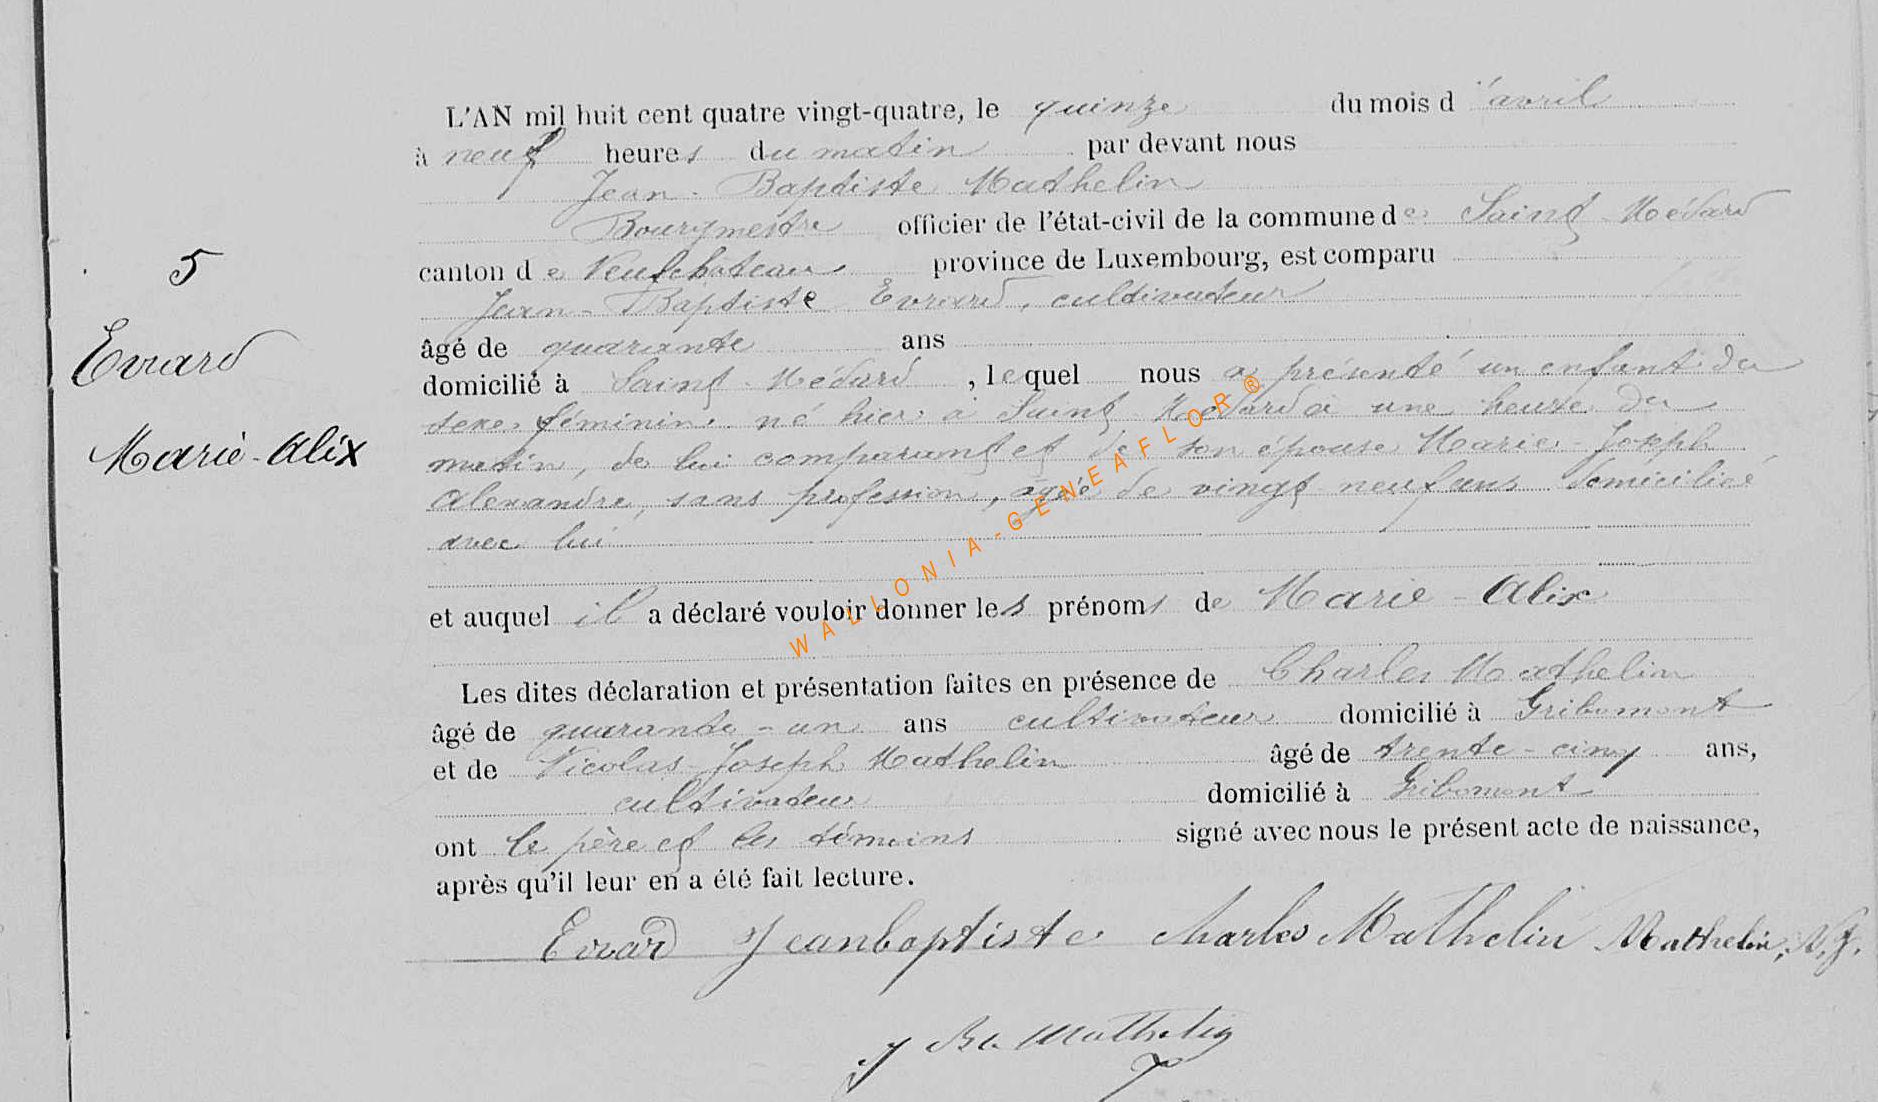 L'AN mil huit cent quatre vingt-quatre, le quinze du mois d'avril
à neuf heures du matin par devant nous
Jean-Baptiste Mathelin
Bourgmestre officier de l'état-civil de la commune de Saint-Médard
canton de Neufchateau province de Luxembourg, est comparu
Jean-Baptiste Evrard, cultivateur
âgé de quarante ans
5
Evrard
domicilié à Saint-Médard, lequel nous a présenté un enfant du
sexe féminin né hier à Saint-Médard à une heure du
Marie-Alix
matin, de lui comparant et de son épouse Marie-Joseph
Alexandre, sans profession, âgée de vingt neuf ans domiciliée
avec lui
et auquel il a déclaré vouloir donner les prénoms de Marie-Alix
WALLONIA-GENEAFLOR®
Les dites déclaration et présentation faites en présence de Charles Mathelin
âgé de quarante-un ans cultivateur domicilié à Gribomont
et de Nicolas-Joseph Mathelin âgé de trente-cinq ans,
cultivateur domicilié à Gribomont
ont le père et les témoins signé avec nous le présent acte de naissance,
après qu'il leur en a été fait lecture.
Evrard Jeanbaptiste Charles Mathelin Mathelin, N.J.
J Bte Mathelin